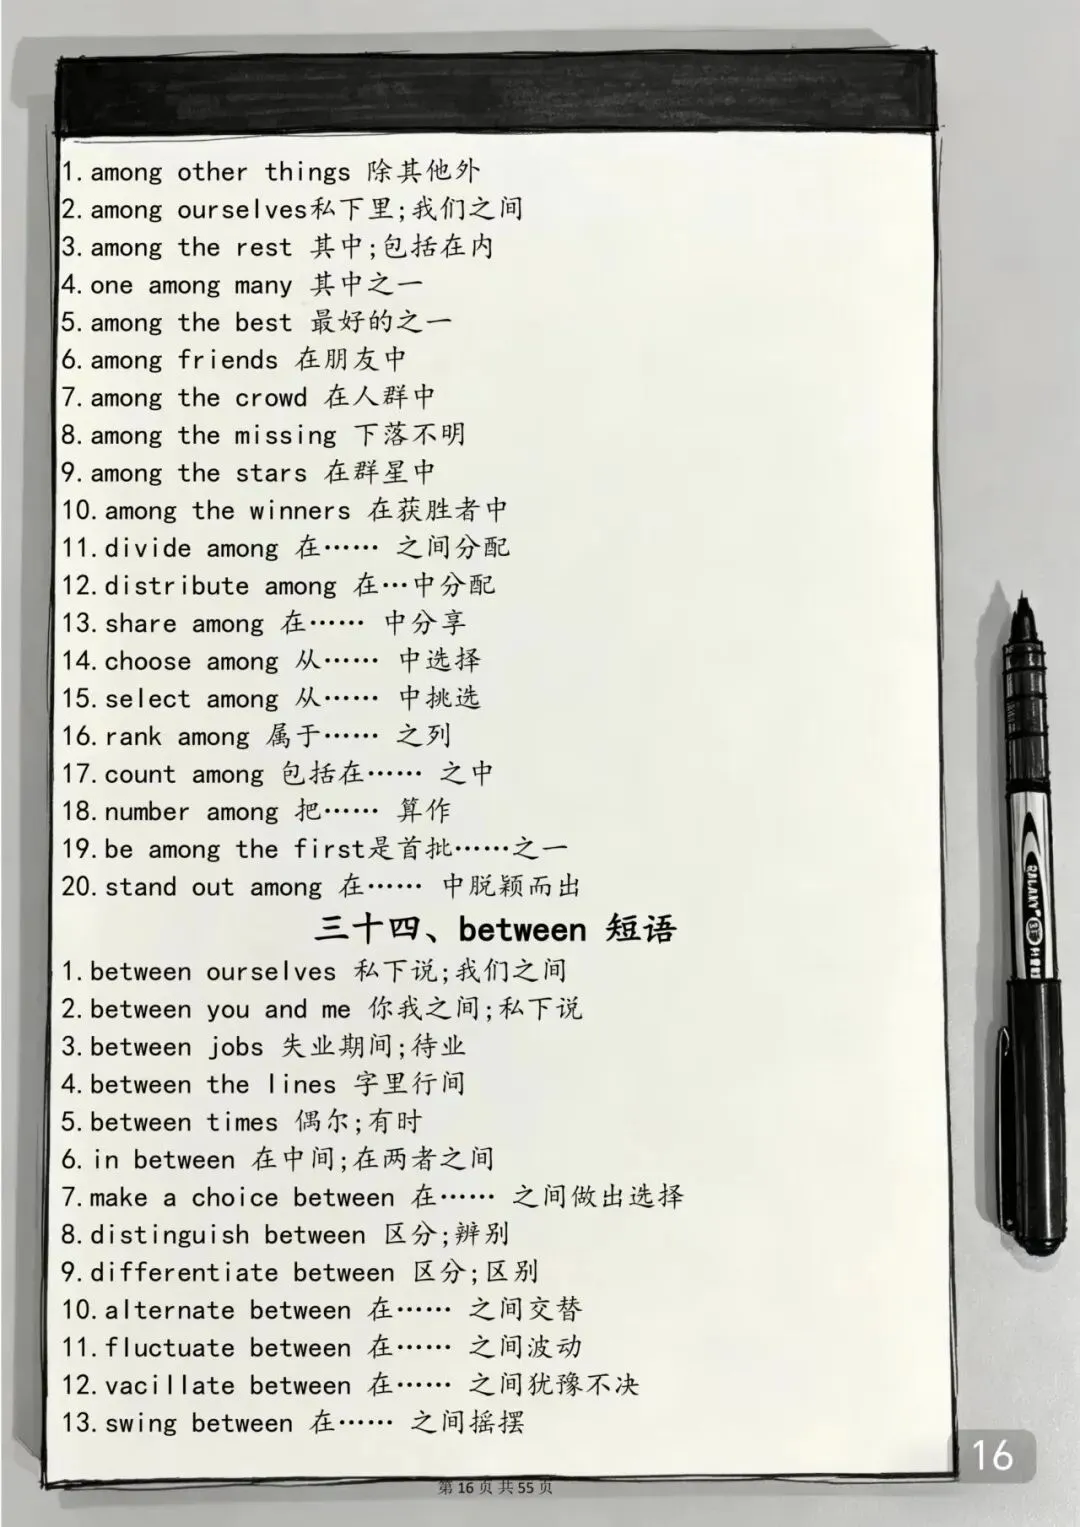 1.among other things 除其他外
2.among ourselves私下里;我们之间
3.among the rest 其中;包括在内
4.one among many 其中之一
5.among the best 最好的之一
6.among friends 在朋友中
7.among the crowd 在人群中
8.among the missing 下落不明
9.among the stars 在群星中
10.among the winners 在获胜者中
11.divide among 在…… 之间分配
12.distribute among 在…中分配
13.share among 在…… 中分享
14.choose among 从…… 中选择
15.select among 从…… 中挑选
16.rank among 属于…… 之列
17.count among 包括在…… 之中
18.number among 把…… 算作
19.be among the first是首批……之一
20.stand out among 在…… 中脱颖而出
三十四、between 短语
1.between ourselves 私下说;我们之间
2.between you and me 你我之间;私下说
3.between jobs 失业期间;待业
4.between the lines 字里行间
5.between times 偶尔;有时
6.in between 在中间;在两者之间
7.make a choice between 在…… 之间做出选择
8.distinguish between 区分;辨别
9.differentiate between 区分;区别
10.alternate between 在…… 之间交替
11.fluctuate between 在…… 之间波动
12.vacillate between 在…… 之间犹豫不决
13.swing between 在…… 之间摇摆
16
第 16 页 共 55 页